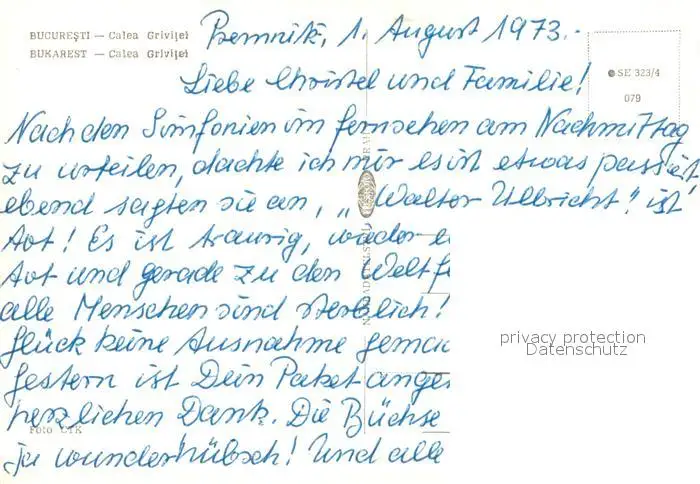 BUCUREȘTI — Calea Griviței
BUKAREST — Calea Griviței
Premnitz, 1. August 1973.-
SE 323/4
079
Liebe Christel und Familie!
Nach den Simfonien im fernsehen am Nachmittag
zu urteilen, dachte ich mir es ist etwas passiert
ebend sagten sie an, „Walter Ulbricht" ist
tot! Es ist traurig, wieder e
tot und gerade zu den Weltfe
alle Menschen sind sterblich!
glück keine Ausnahme gemac
gestern ist Dein Paket ange
herzlichen Dank. Die Büchse
ja wunderhübsch! Und alle
Foto CTK
privacy protection
Datenschutz